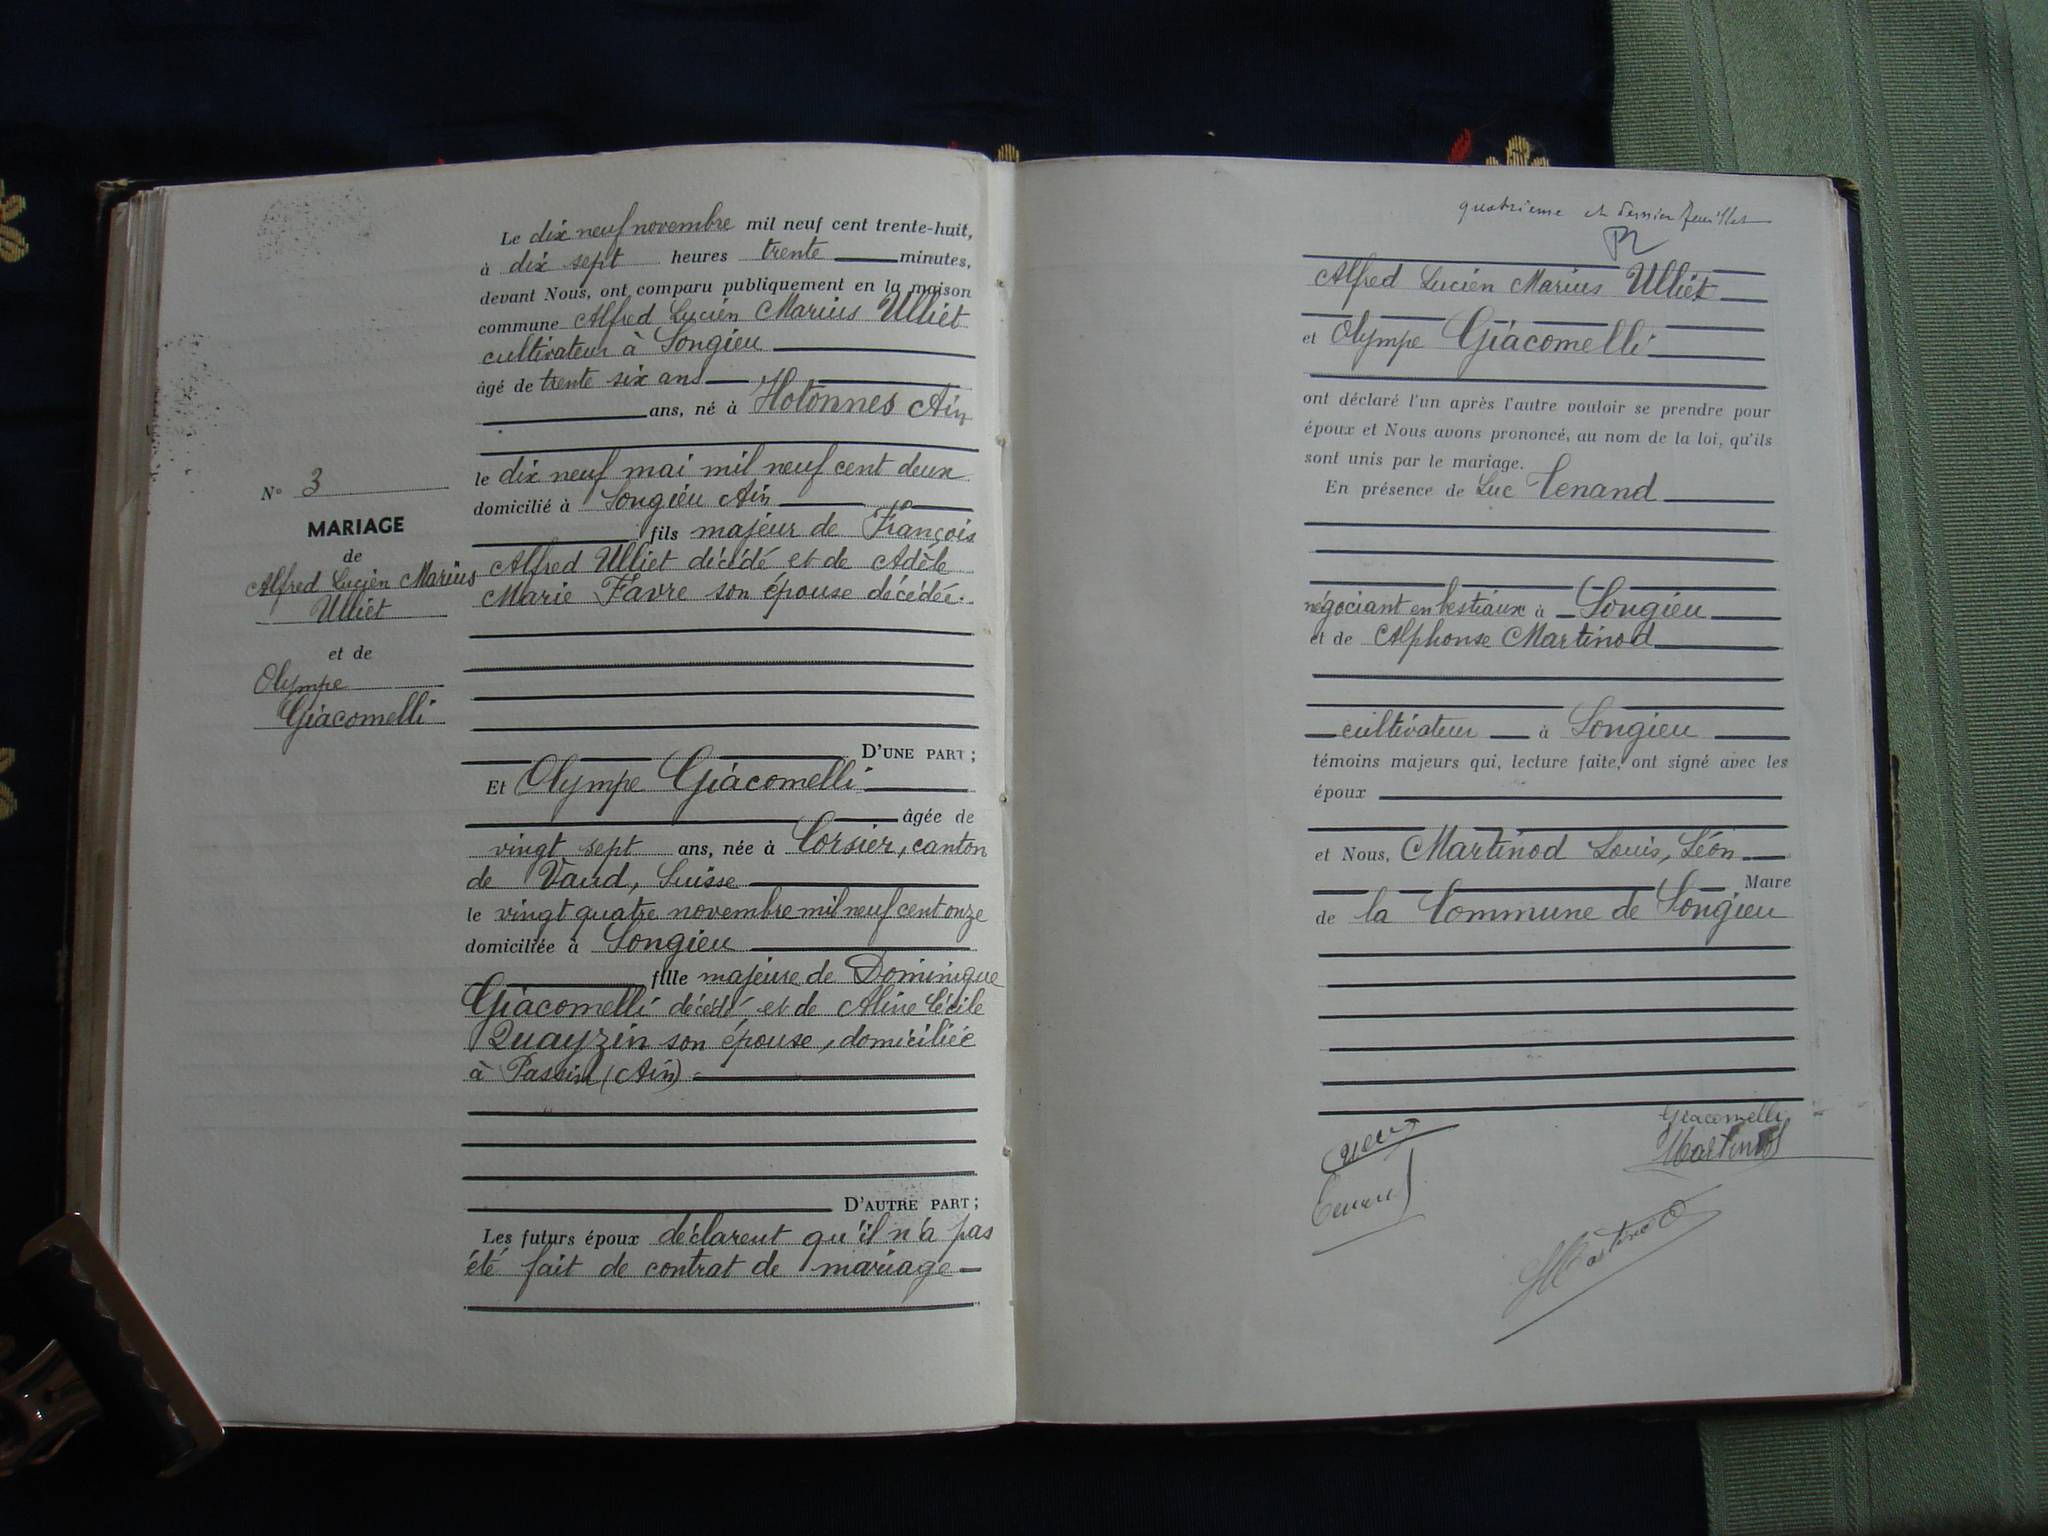 Le dix neuf novembre mil neuf cent trente-huit,
à dix sept heures trente minutes,
devant Nous, ont comparu publiquement en la maison
commune Alfred Lucien Marius Ulliet
cultivateur à Songieu
âgé de trente six ans
ans, né à Hotonnes Ain
le dix neuf mai mil neuf cent deux
domicilié à Songieu Ain
fils majeur de François
Alfred Ulliet décédé et de Adèle
Marie Favre son épouse décédée.
D'UNE PART ;
Et Olympe Giacomelli
âgée de
vingt sept ans, née à Corsier, canton
de Vaud, Suisse
le vingt quatre novembre mil neuf cent onze
domiciliée à Songieu
fille majeure de Dominique
Giacomelli décédé et de Aline Cécile
Quayzin son épouse, domiciliée
à Passin (Ain)
D'AUTRE PART ;
Les futurs époux déclarent qu'il n'a pas
été fait de contrat de mariage
N° 3
MARIAGE
de
Alfred Lucien Marius
Ulliet
et de
Olympe
Giacomelli
quatrième et dernier feuillet
Alfred Lucien Marius Ulliet
et Olympe Giacomelli
ont déclaré l'un après l'autre vouloir se prendre pour
époux et Nous avons prononcé, au nom de la loi, qu'ils
sont unis par le mariage.
En présence de Luc Tenand
négociant en bestiaux à Songieu
et de Alphonse Martinod
cultivateur à Songieu
témoins majeurs qui, lecture faite, ont signé avec les
époux
et Nous, Martinod Louis, Léon
Maire
de la Commune de Songieu
Giacomelli
Martinod
Tenand
Martinod